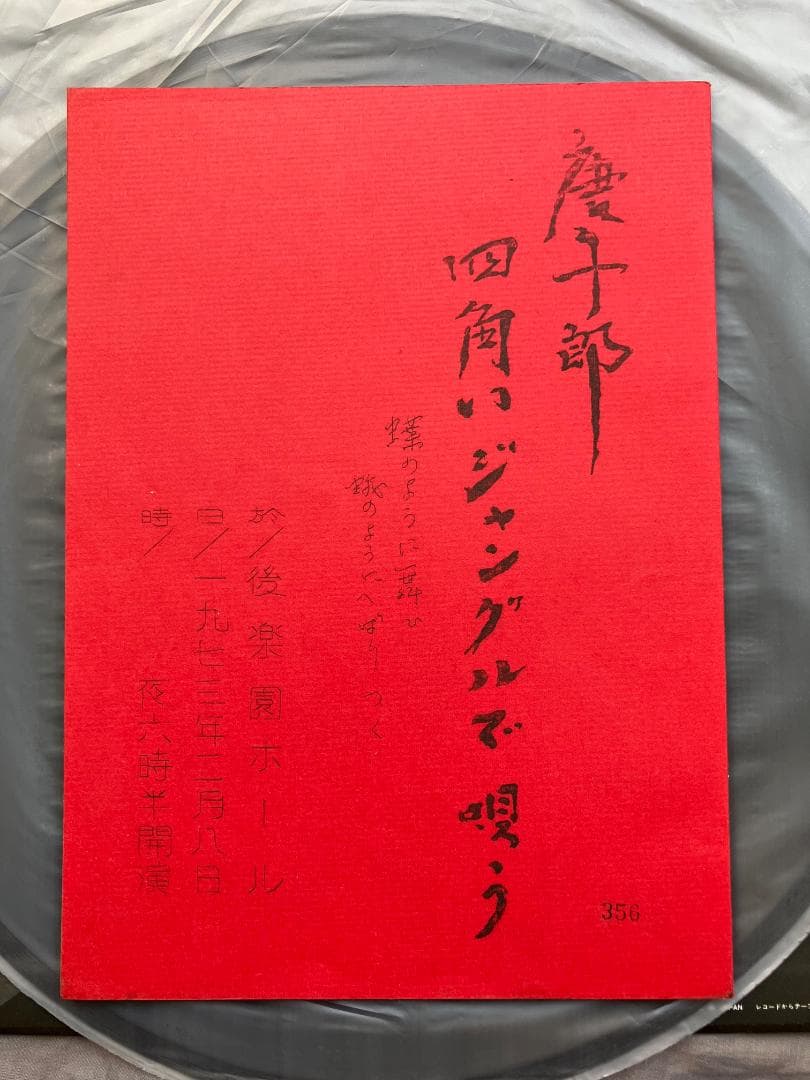 慶十郎
四角いジャングルで唄う
蝶のように舞ひ
蛾のようにへばりつく
於/後楽園ホール
日/一九七三年二月八日
時/夜六時半開演
356
レコードからテープ